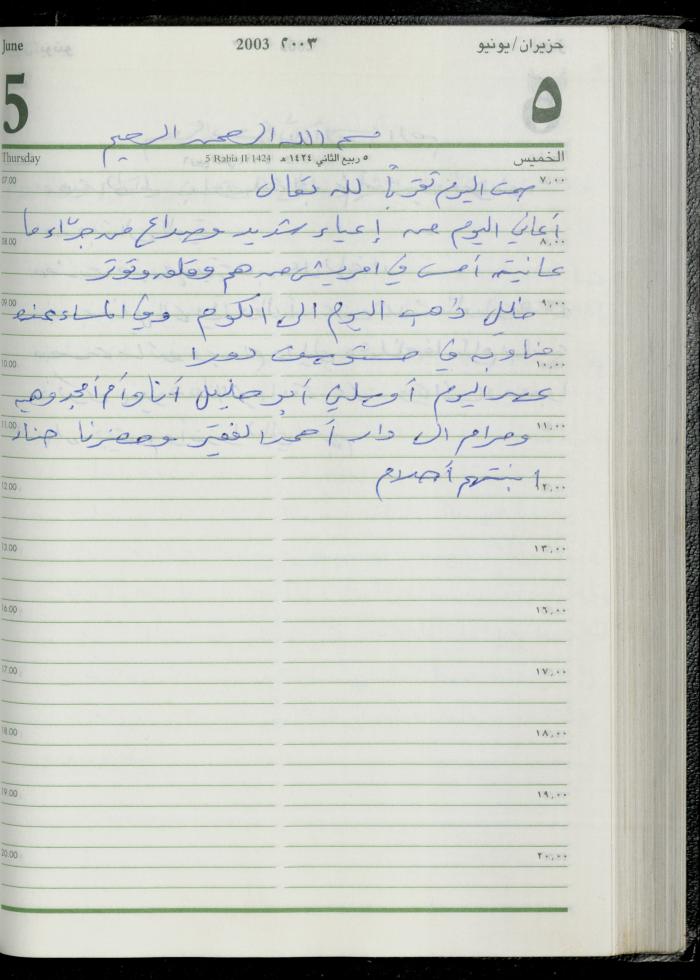 June 2003 ٢٠٠٣ حزيران/يونيو
5 ٥
بسم الله الرحمن الرحيم
Thursday 5 Rabia II 1424 ٥ ربيع الثاني ١٤٢٤ هـ الخميس
07.00 ٧,٠٠
صمت اليوم تقرباً لله تعالى
أعاني اليوم من إعياء شديد وصداع من جرّاء ما
08.00 ٨,٠٠
عانيته أمس في امريش من هم وقلق وتوتر
09.00 ٩,٠٠
خليل ذهب اليوم الى الكوم وفي المساء عنده
مناوبة في مستوصف دورا
10.00 ١٠,٠٠
عصر اليوم أوصلني أبو خليل أنا وأم أمجد وهبه
11.00 ١١,٠٠
ومرام الى دار أحمد الفقير وحضرنا حناء
ابنتهم أحلام
12.00 ١٢,٠٠
13.00 ١٣,٠٠
16.00 ١٦,٠٠
17.00 ١٧,٠٠
18.00 ١٨,٠٠
19.00 ١٩,٠٠
20.00 ٢٠,٠٠